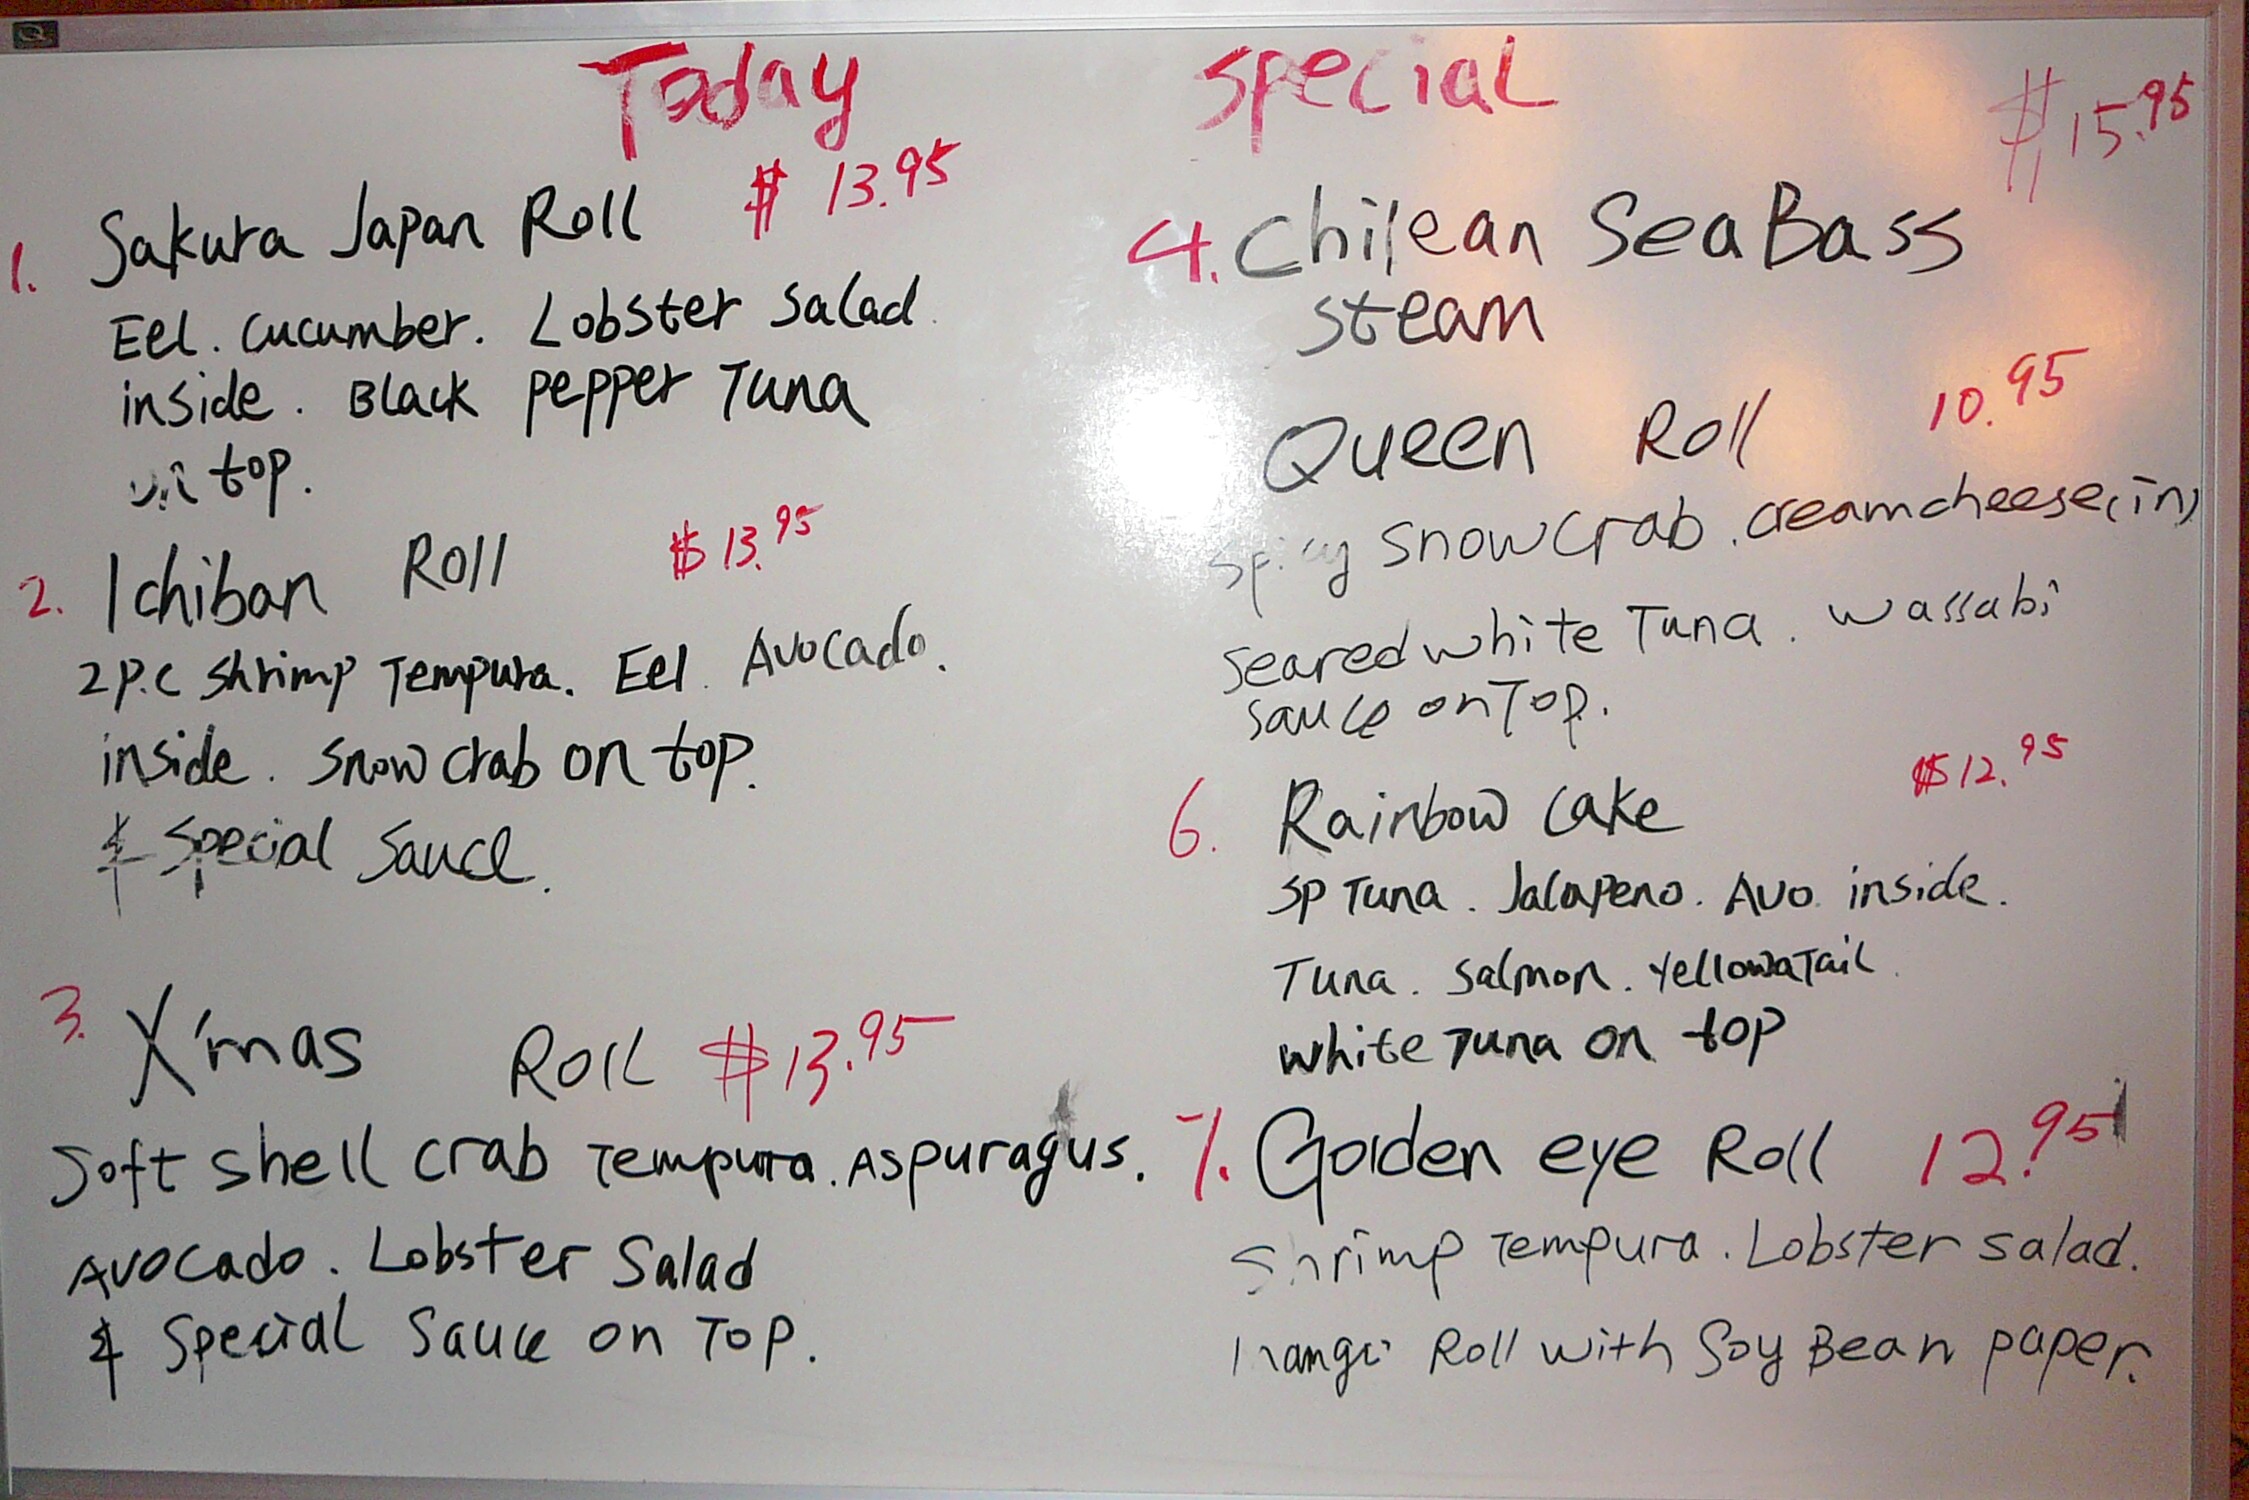 Today Special
1. Sakura Japan Roll $ 13.95
Eel. Cucumber. Lobster Salad.
inside. Black pepper Tuna
top.
2. Ichiban Roll $ 13.95
2 P.C Shrimp Tempura. Eel. Avocado.
inside. Snow crab on top.
& Special Sauce.
3. X'mas Roll $ 13.95
Soft shell crab Tempura. Aspuragus.
Avocado. Lobster Salad
& Special Sauce on Top.
$ 15.95
4. Chilean Sea Bass
steam
Queen Roll 10.95
Spicy Snow Crab. creamcheese (in)
Seared white Tuna. wassabi
sauce on Top.
6. Rainbow Cake $12.95
SP Tuna. Jalapeno. Avo. inside.
Tuna. Salmon. YellowaTail
white Tuna on top
7. Golden eye Roll 12.95
Shrimp Tempura. Lobster salad.
Roll with Soy Bean paper.